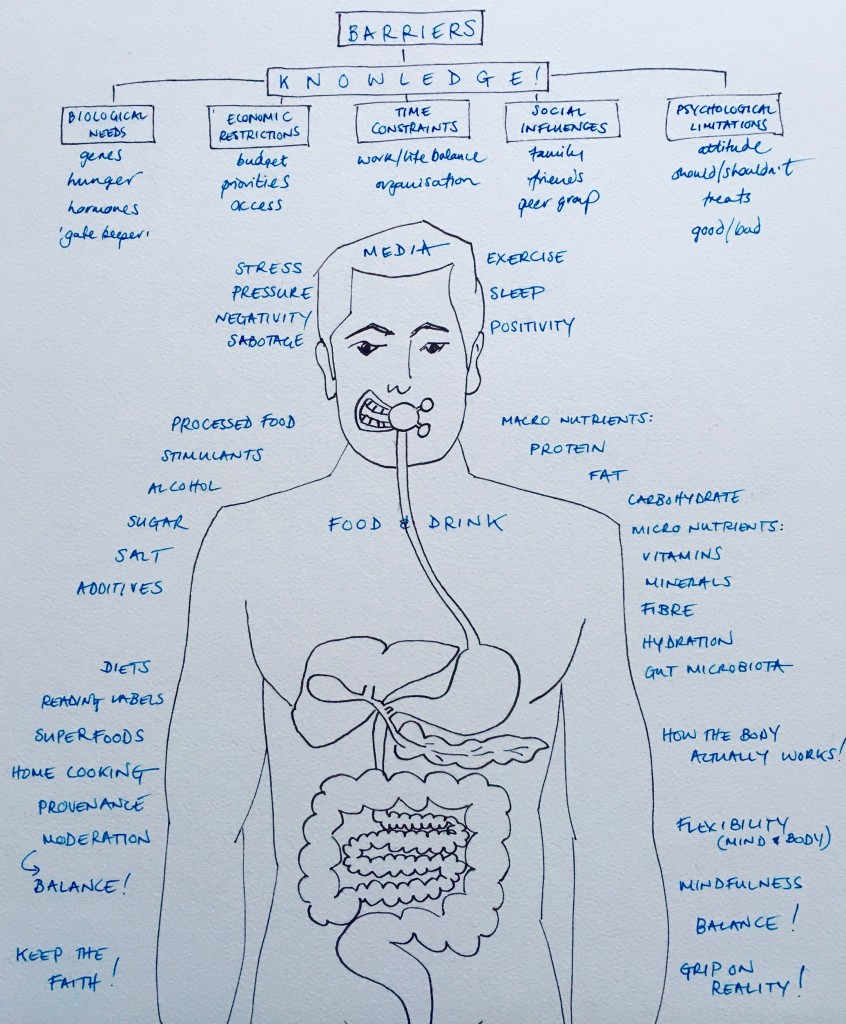 BARRIERS
KNOWLEDGE!
BIOLOGICAL
NEEDS
genes
hunger
hormones
'gate keeper'
ECONOMIC
RESTRICTIONS
budget
priorities
access
TIME
CONSTRAINTS
work/life balance
organisation
SOCIAL
INFLUENCES
family
friends
peer group
PSYCHOLOGICAL
LIMITATIONS
attitude
should/shouldn't
treats
good/bad
MEDIA
STRESS
PRESSURE
NEGATIVITY
SABOTAGE
EXERCISE
SLEEP
POSITIVITY
PROCESSED FOOD
STIMULANTS
ALCOHOL
SUGAR
SALT
ADDITIVES
FOOD & DRINK
MACRO NUTRIENTS:
PROTEIN
FAT
CARBOHYDRATE
MICRO NUTRIENTS:
VITAMINS
MINERALS
FIBRE
HYDRATION
GUT MICROBIOTA
DIETS
READING LABELS
SUPERFOODS
HOME COOKING
PROVENANCE
MODERATION
BALANCE!
KEEP THE
FAITH!
HOW THE BODY
ACTUALLY WORKS!
FLEXIBILITY
(MIND & BODY)
MINDFULNESS
BALANCE!
GRIP ON
REALITY!